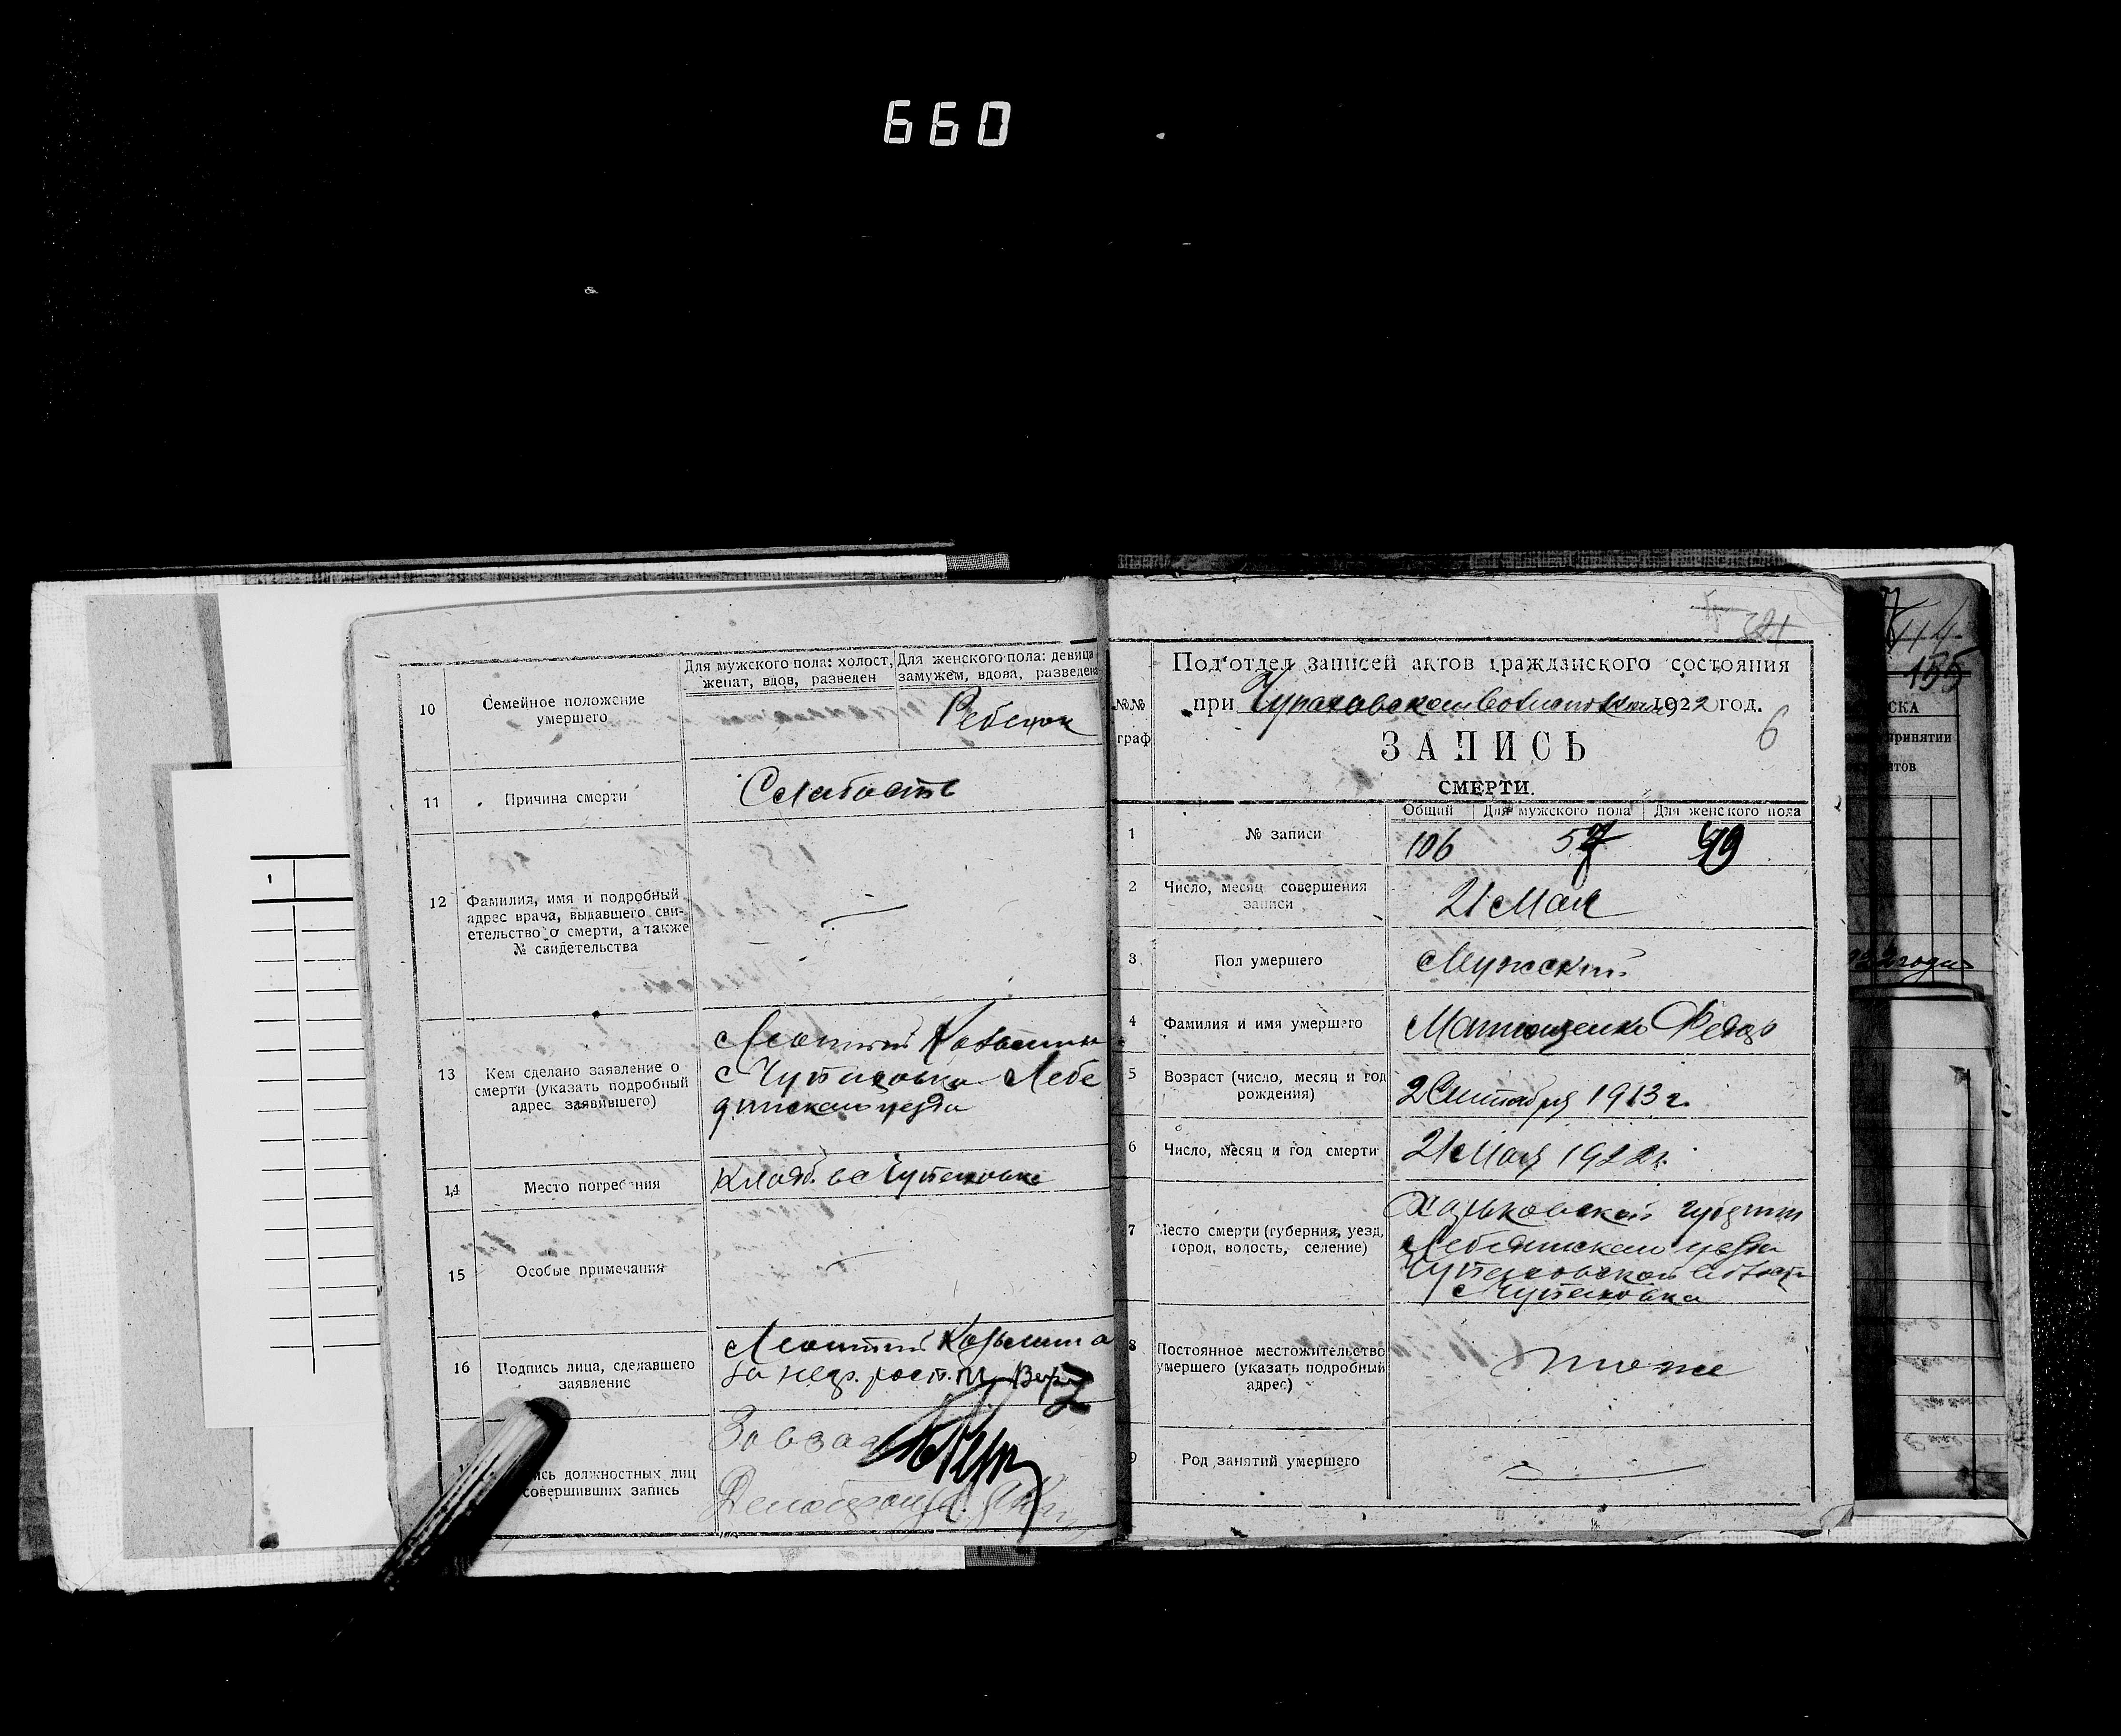 660
10
Семейное положение
умершего
Для мужского пола: холост,
женат, вдов, разведен
Для женского пола: девица
замужем, вдова, разведена
Ребенок
11
Причина смерти
Слабость
12
Фамилия, имя и подробный
адрес врача, выдавшего сви-
етельство о смерти, а также
№ свидетельства
—
13
Кем сделано заявление о
смерти (указать подробный
адрес заявившего)
Леонтий
с Чупаховка Лебе
динского уезда
14
Место погребения
Кладб. в с Чупаховке
15
Особые примечания
—
16
Подпись лица, сделавшего
заявление
Леонтий
за негр.
ись должностных лиц
совершивших запись
Делопроизв.
34
№№
граф
Под'отдел записей актов гражданского состояния
при Чупаховском Волисполкоме 1922 год.
6
ЗАПИСЬ
СМЕРТИ.
Общий
Для мужского пола
Для женского пола
1
№ записи
106 57 49
2
Число, месяц совершения
записи
21 Мая
3
Пол умершего
Мужской
4
Фамилия и имя умершего
Матющенко Федор
5
Возраст (число, месяц и год
рождения)
2 Сентября 1913 г.
6
Число, месяц и год смерти
21 Мая 1922 г.
7
Место смерти (губерния, уезд,
город, волость, селение)
Харьковской губернии
Лебединского уезда
Чупаховской волости
с Чупаховка
8
Постоянное местожительство
умершего (указать подробный
адрес)
тоже
9
Род занятий умершего
—
144
155
СКА
принятии
нтов
года
1